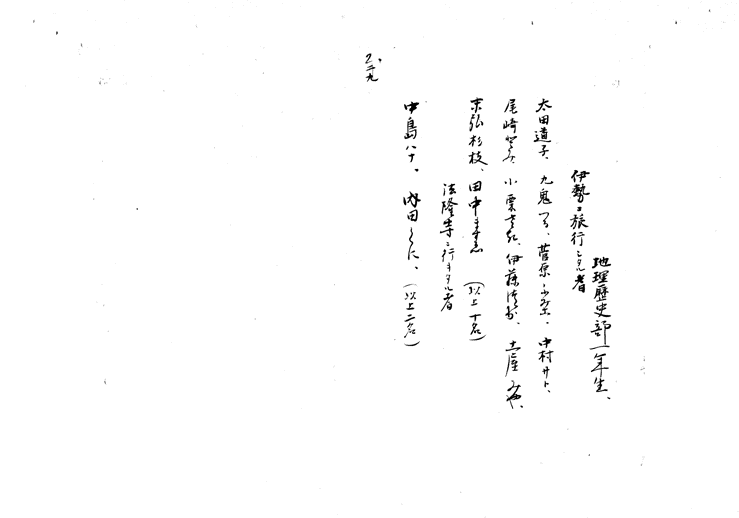 地理歴史部一年生、
伊勢ニ旅行シタル者
太田道子、九鬼つる、菅原ふみゑ、中村サト、
尾崎、小栗、伊藤、土屋みや、
末弘杉枝、田中 (以上十名)
法隆寺ニ行キタル者
中島ハナ、内田くに、(以上二名)